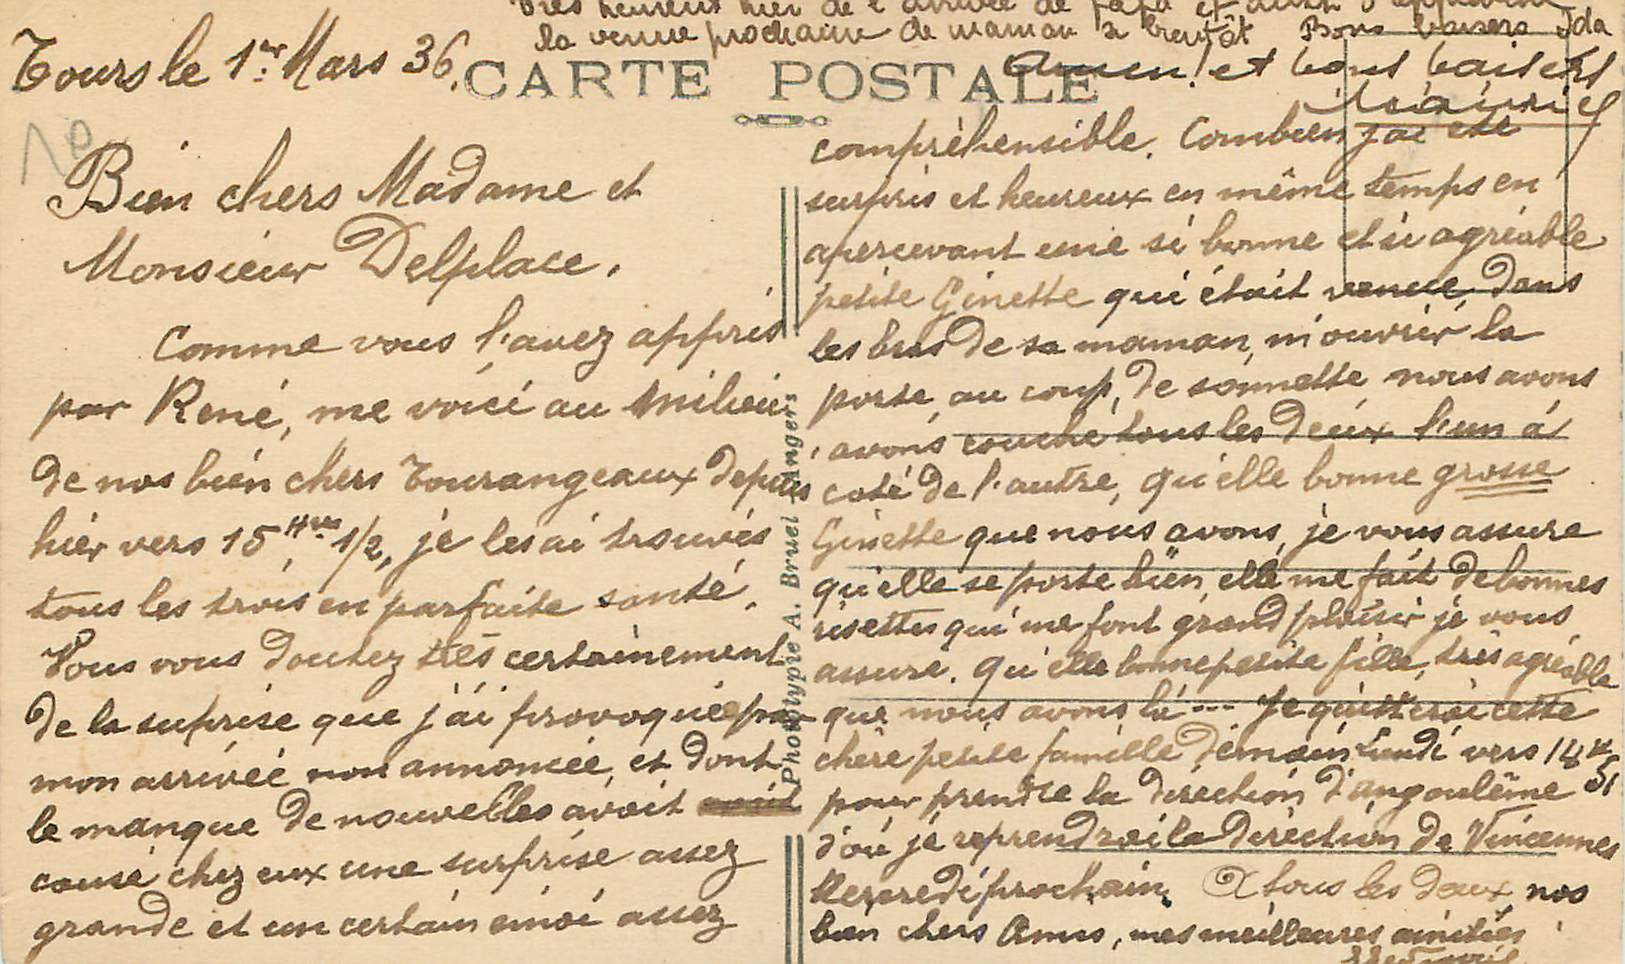 Très heureux hier de l'arrivée de Papa et aussi d'apprendre
la venue prochaine de maman à bientôt Bons baisers Ida
Amen! et bons baisers
Tours le 1er Mars 36.
CARTE POSTALE
Bien chers Madame et
Monsieur Delplace.
Comme vous l'avez appris
par René, me voici au milieu
de nos bien chers Tourangeaux depuis
hier vers 15 Hres 1/2, je les ai trouvés
tous les trois en parfaite santé.
Vous vous doutez très certainement
de la suprise que j'ai provoquée par
mon arrivée non annoncée, et dont
le manque de nouvelles avait
causé chez eux une surprise assez
grande et un certain émoi assez
Phototypie A. Bruel Angers
compréhensible. Combien j'ai été
surpris et heureux en même temps en
apercevant une si bonne et si agréable
petite Ginette qui était venue, dans
les bras de sa maman, m'ouvrir la
porte, au coup, de sonnette, nous avons
avons couché tous les deux l'un à
coté de l'autre, qu'elle bonne grosse
Ginette que nous avons, je vous assure
qu'elle se porte bien, elle me fait de bonnes
risettes qui me font grand plaisir je vous
assure. qu'elle bonne petite fille, très agréable
que nous avons là... Je quitterai cette
chère petite famille demain Lundi vers 14 H
pour prendre la direction d'angoulême
d'où je reprendrai la direction de Vincennes
Mercredi prochain. A tous les deux, nos
bien chers Amis, mes meilleures amitiés